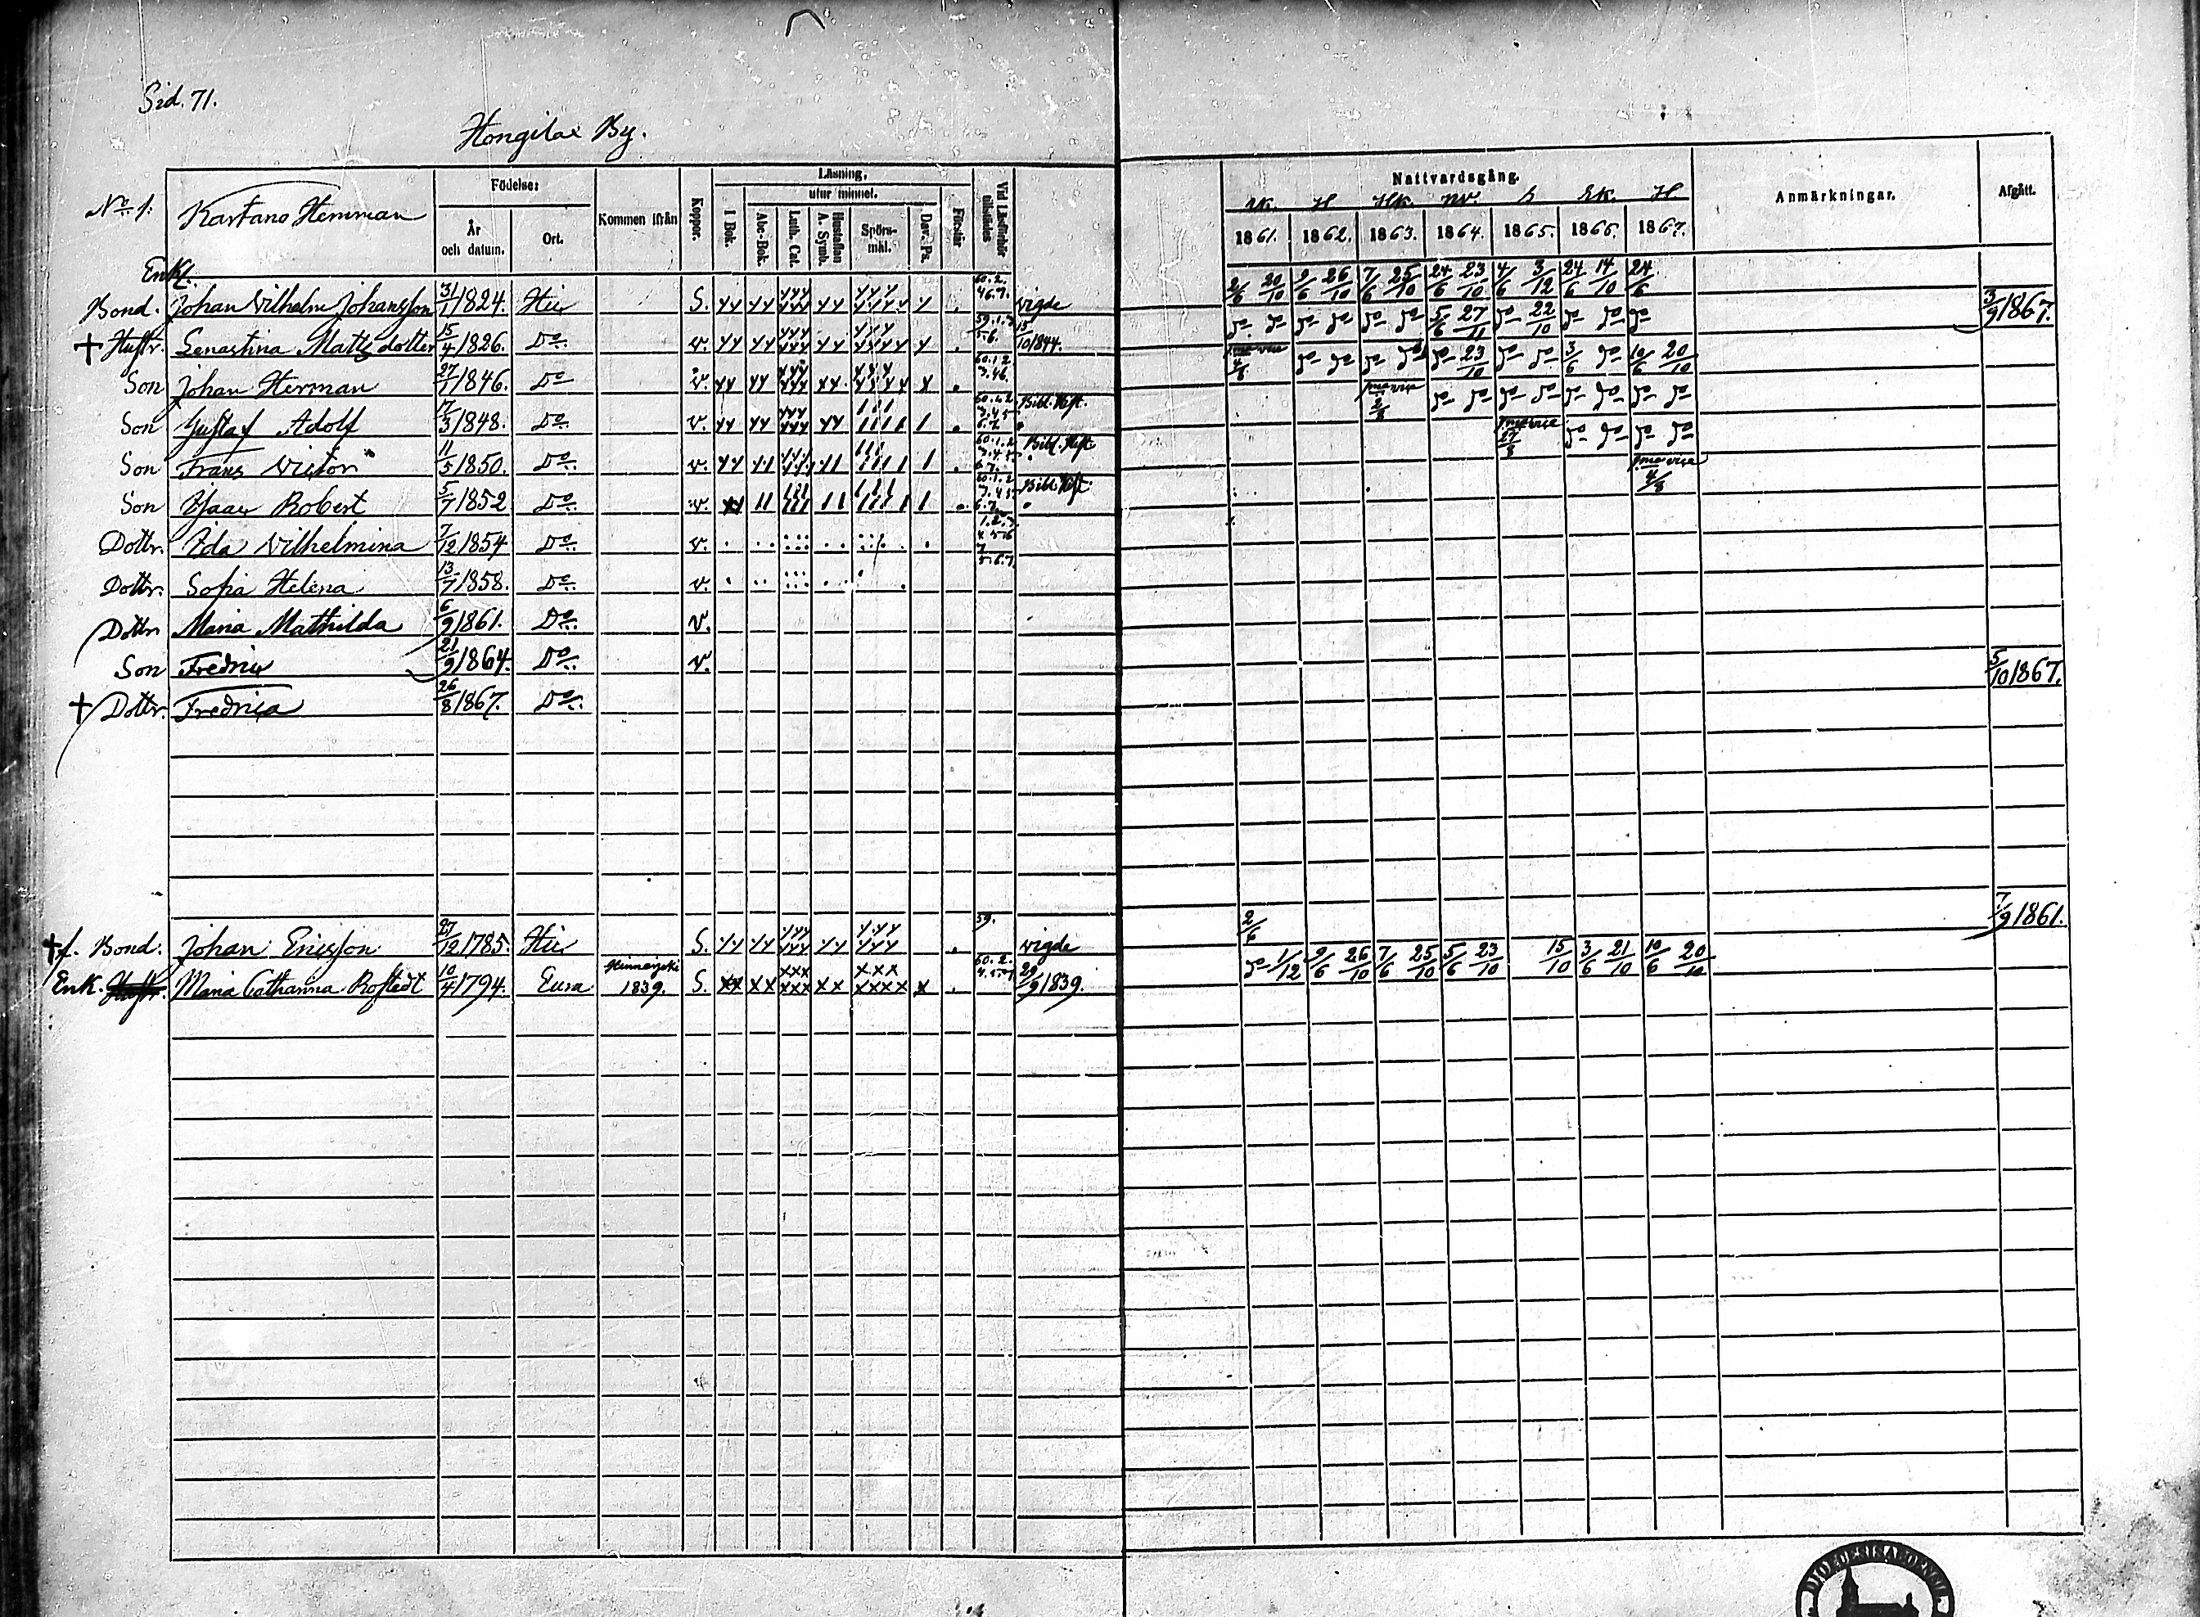 Sid. 71.
Hongilax By.
No 1: Kartano Hemman
Födelse:
År och datum.
Ort.
Kommen ifrån
Koppor.
Läsning,
I Bok.
utur minnet.
Abc-Bok.
Luth. Cat.
Hustaflan A. Symb.
Spörsmål.
Dav. Ps.
Förstår
Vid Läsförhör tillstädes
Nattvardsgång.
Anmärkningar.
Afgått.
1861. 1862. 1863. 1864. 1865. 1866. 1867.
Enkl.
Bond. Johan Vilhelm Johansson 31/1 1824. Hic S. vigde 2/6 20/10 9/6 26/10 7/6 25/10 24/6 23/10 4/6 3/12 24/6 14/10 24/6
† Hustr. Lenastina Matts dotter 15/4 1826. Do v. 15/10 1844. do do do do do do 5/6 27/11 do 22/10 do do do 3/9 1867.
Son Johan Herman 27/1 1846. Do v. do do do do do 23/10 do do 3/6 do 10/6 20/10
Son Gustaf Adolf 17/3 1848. Do v. Bibl. Hist. do do do do do do do do
Son Frans Victor 11/5 1850. Do v. Bibl. Hist. do do do do
Son Isaac Robert 5/7 1852 Do v. Bibl. Hist.
Dottr. Ida Vilhelmina 7/12 1854 Do v.
Dottr. Sofia Helena 13/7 1858. Do v.
Dottr Maria Mathilda 6/9 1861. Do v.
Son Fredric 21/9 1864. Do v.
† Dottr. Fredrica 26/8 1867. Do 5/10 1867.
† f. Bond. Johan Ericsson 27/12 1785. Hic S. 59. vigde 2/6 7/9 1861.
Enk. Hustr. Maria Catharina Rostedt 10/4 1794. Eura 1839. S. 29/9 1839. do 1/12 9/6 26/10 7/6 25/10 5/6 23/10 15/10 3/6 21/10 10/6 20/10